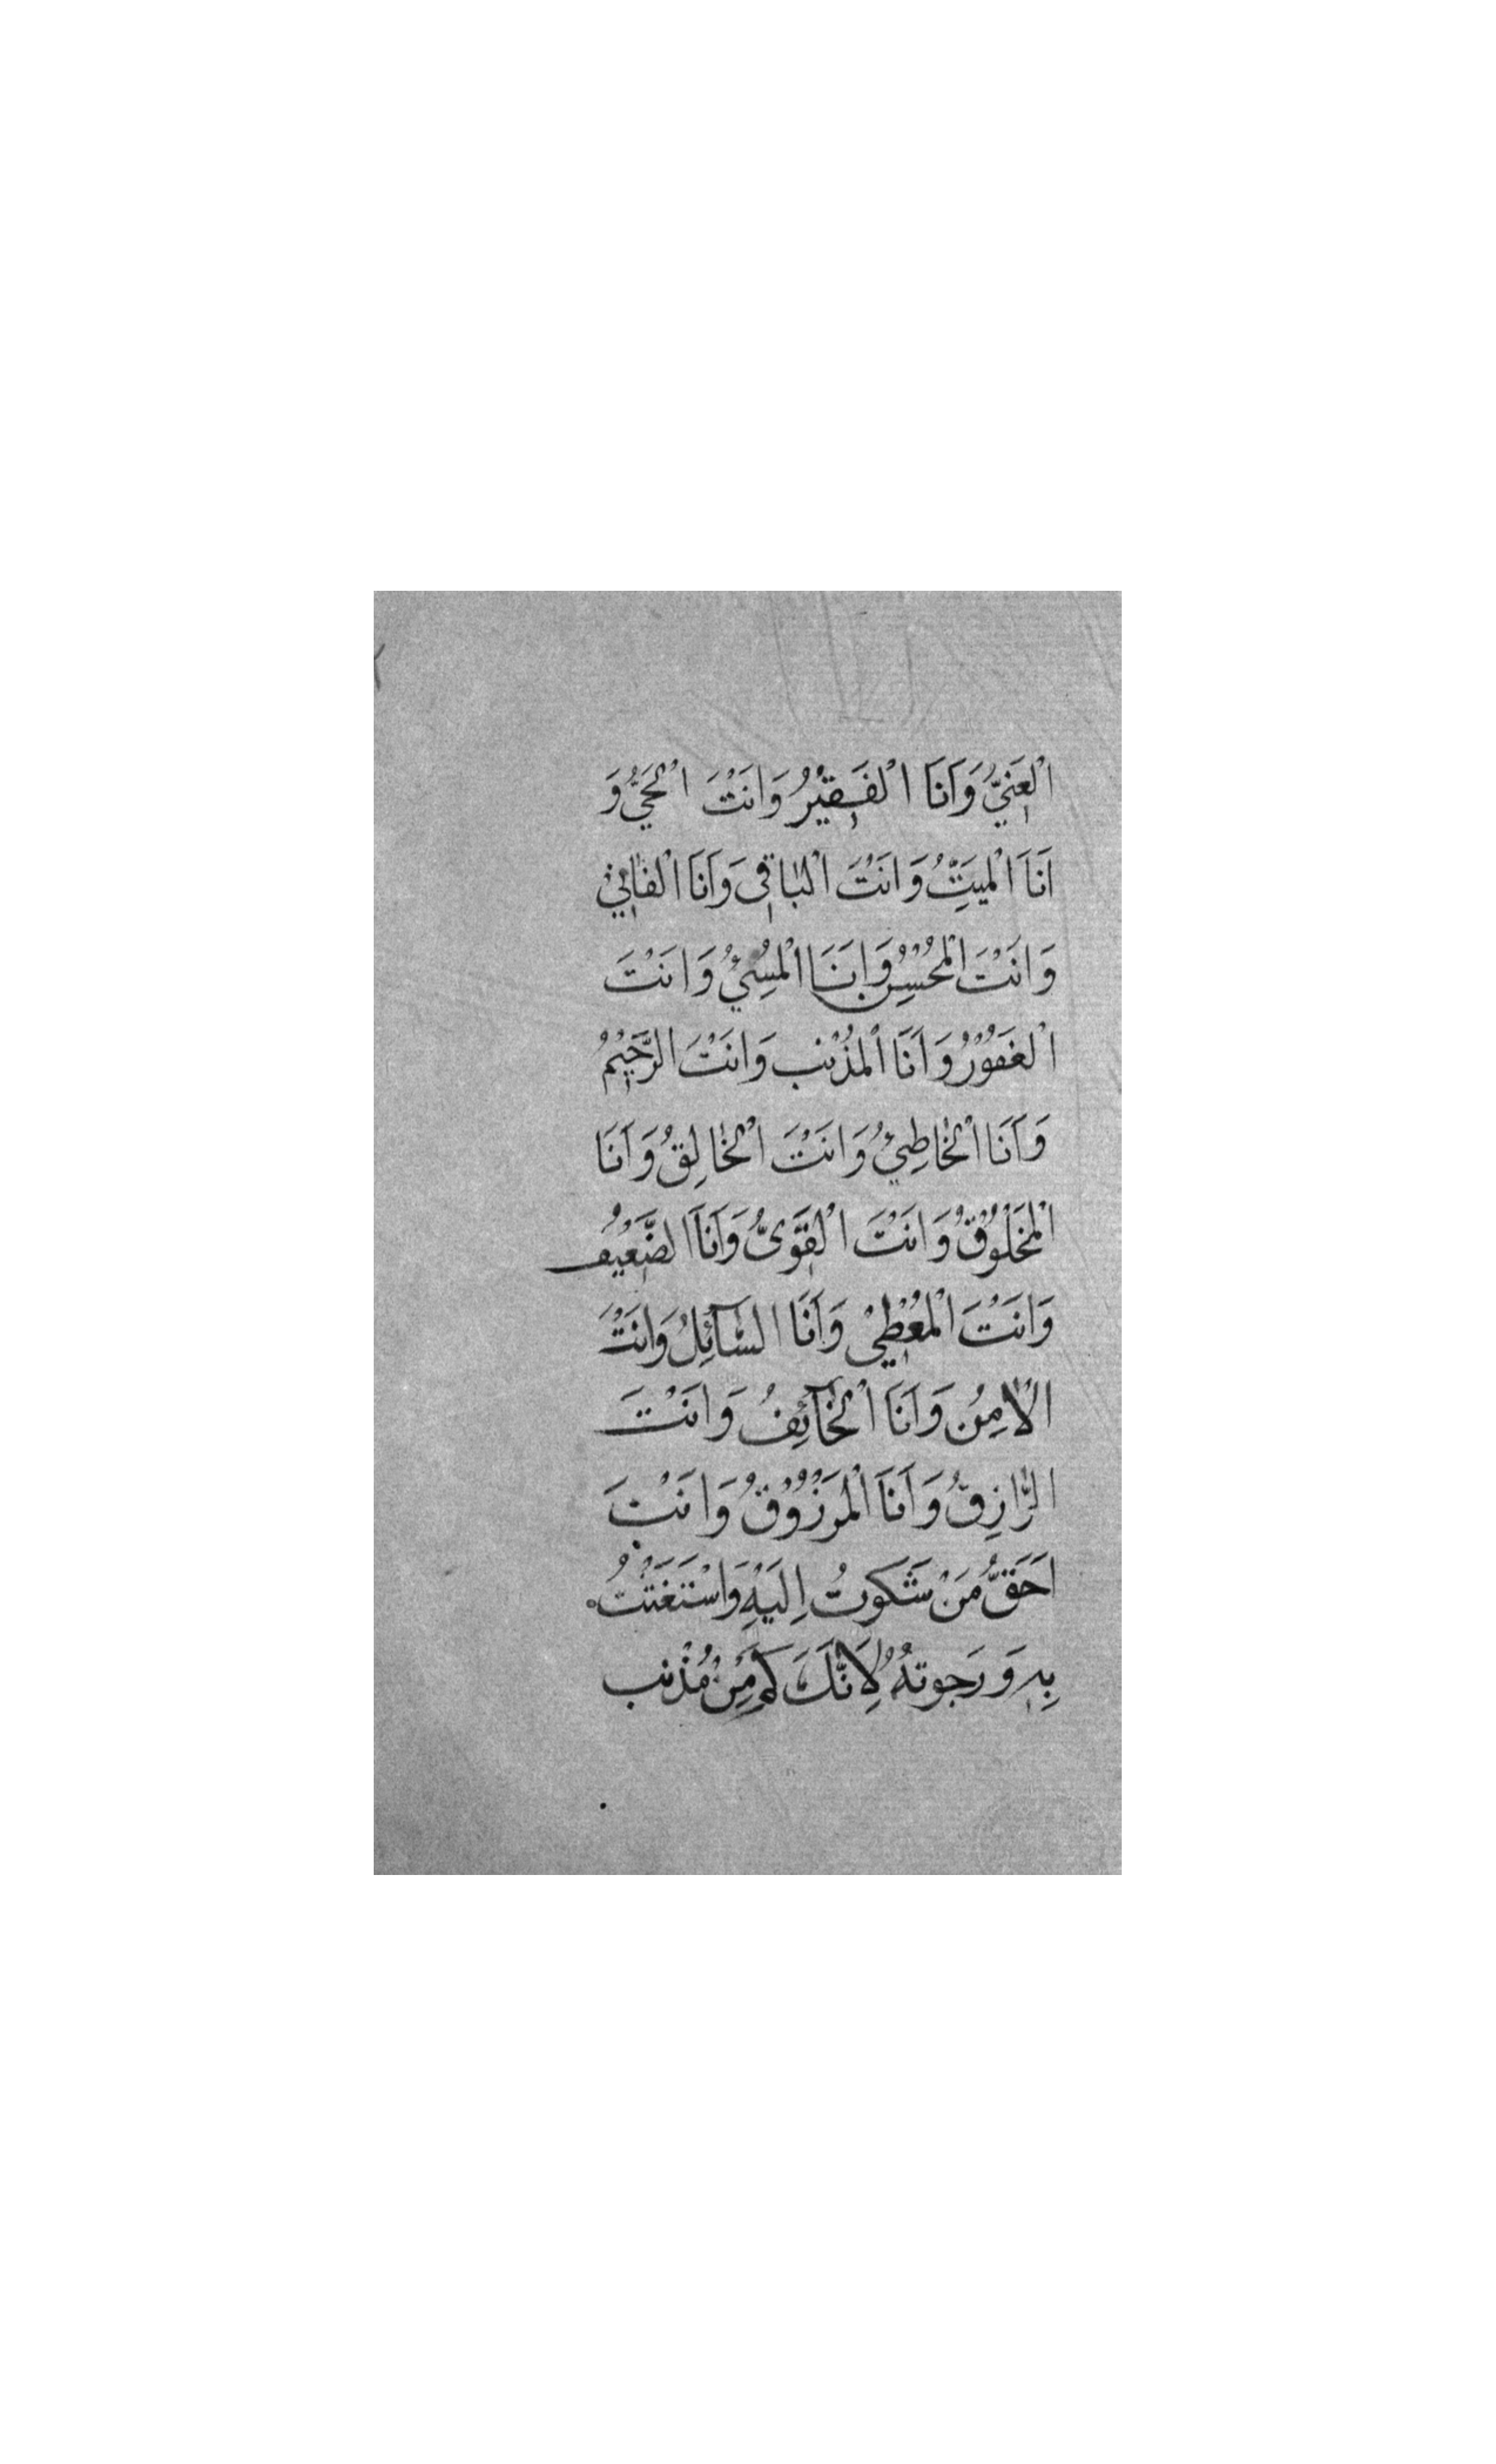 الْغَنِيُّ وَاَنَا الْفَقِيْرُ وَاَنْتَ الْحَيُّ وَ
اَنَا الْمَيِّتُ وَاَنْتَ الْبَاقِي وَاَنَا الْفَانِيْ
وَاَنْتَ الْمُحْسِنُ وَاَنَا الْمُسِيْئُ وَاَنْتَ
الْغَفُوْرُ وَاَنَا الْمُذْنِب وَاَنْتَ الرَّحِيْمُ
وَاَنَا الْخَاطِيْئُ وَاَنْتَ الْخَالِقُ وَاَنَا
الْمَخْلُوْقُ وَاَنْتَ الْقَوِىُّ وَاَنَا الضَّعِيْفُ
وَاَنْتَ الْمُعْطِيْ وَاَنَا السَّآئِلُ وَاَنْتَ
الْاَمِنُ وَاَنَا الْخَآئِفُ وَاَنْتَ
الرَّازِقُ وَاَنَا الْمَرْزُوْقُ وَاَنْتَ
اَحَقُّ مَنْ شَكَوتُ اِلَيْهِ وَاسْتَغَثْتُ
بِهِ وَ رَجوتهُ لِاَنَّكَ كَمْ مِنْ مُذْنِب